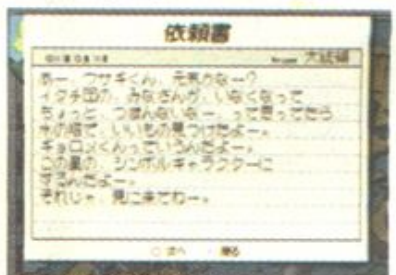 依頼書
大統領
あー、ウサギくん、元気かなー?
イクチ団の、みなさんが、いなくなって
ちょっと、つまんないなー、って思ってたら
水の塔で、いいもの見つけたよー。
キョロメくんっていうんだよー。
この星の、シンボルキャラクターに
するんだよー。
それじゃ、見に来てねー。
次へ 戻る